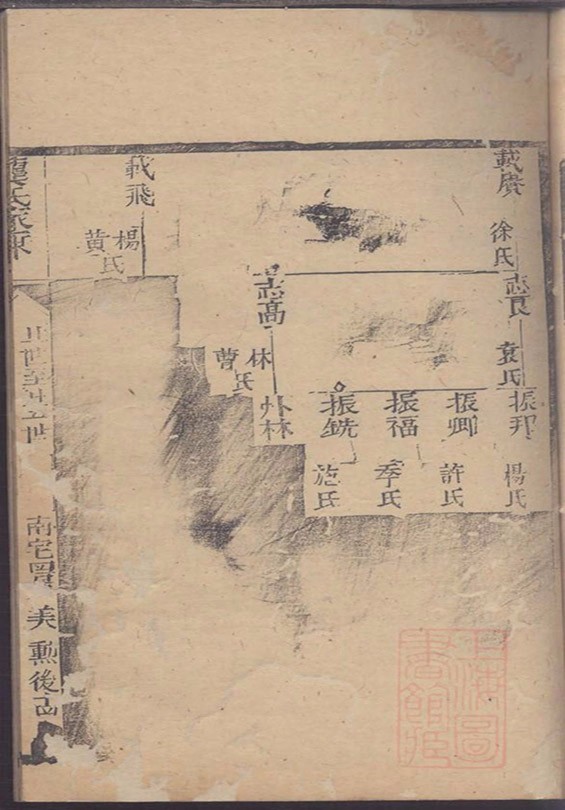 載廣
徐氏
志良
袁氏
振邦
楊氏
振卿
許氏
振福
季氏
振銑
范氏
志高
林
曹氏
外林
載飛
楊
黃氏
龔氏家
世至廿五世
南宅
美勲後
圖
書館